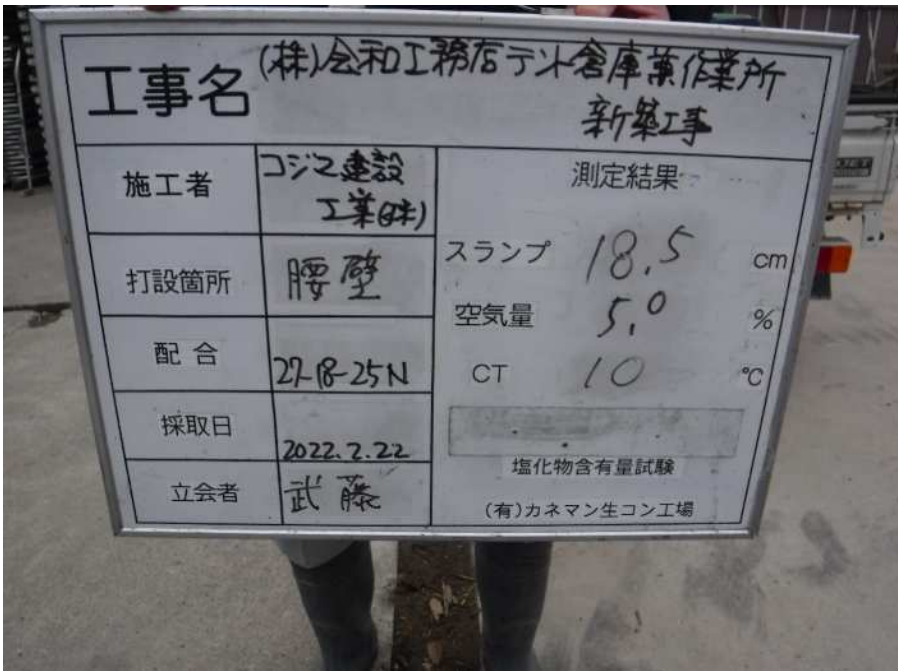 工事名
(株)会和工務店テント倉庫兼作業所
新築工事
施工者
コジマ建設
工業(株)
打設箇所
腰壁
配合
27-18-25N
採取日
2022.2.22
立会者
武藤
測定結果
スランプ 18.5 cm
空気量 5.0 %
CT 10 ℃
塩化物含有量試験
(有)カネマン生コン工場